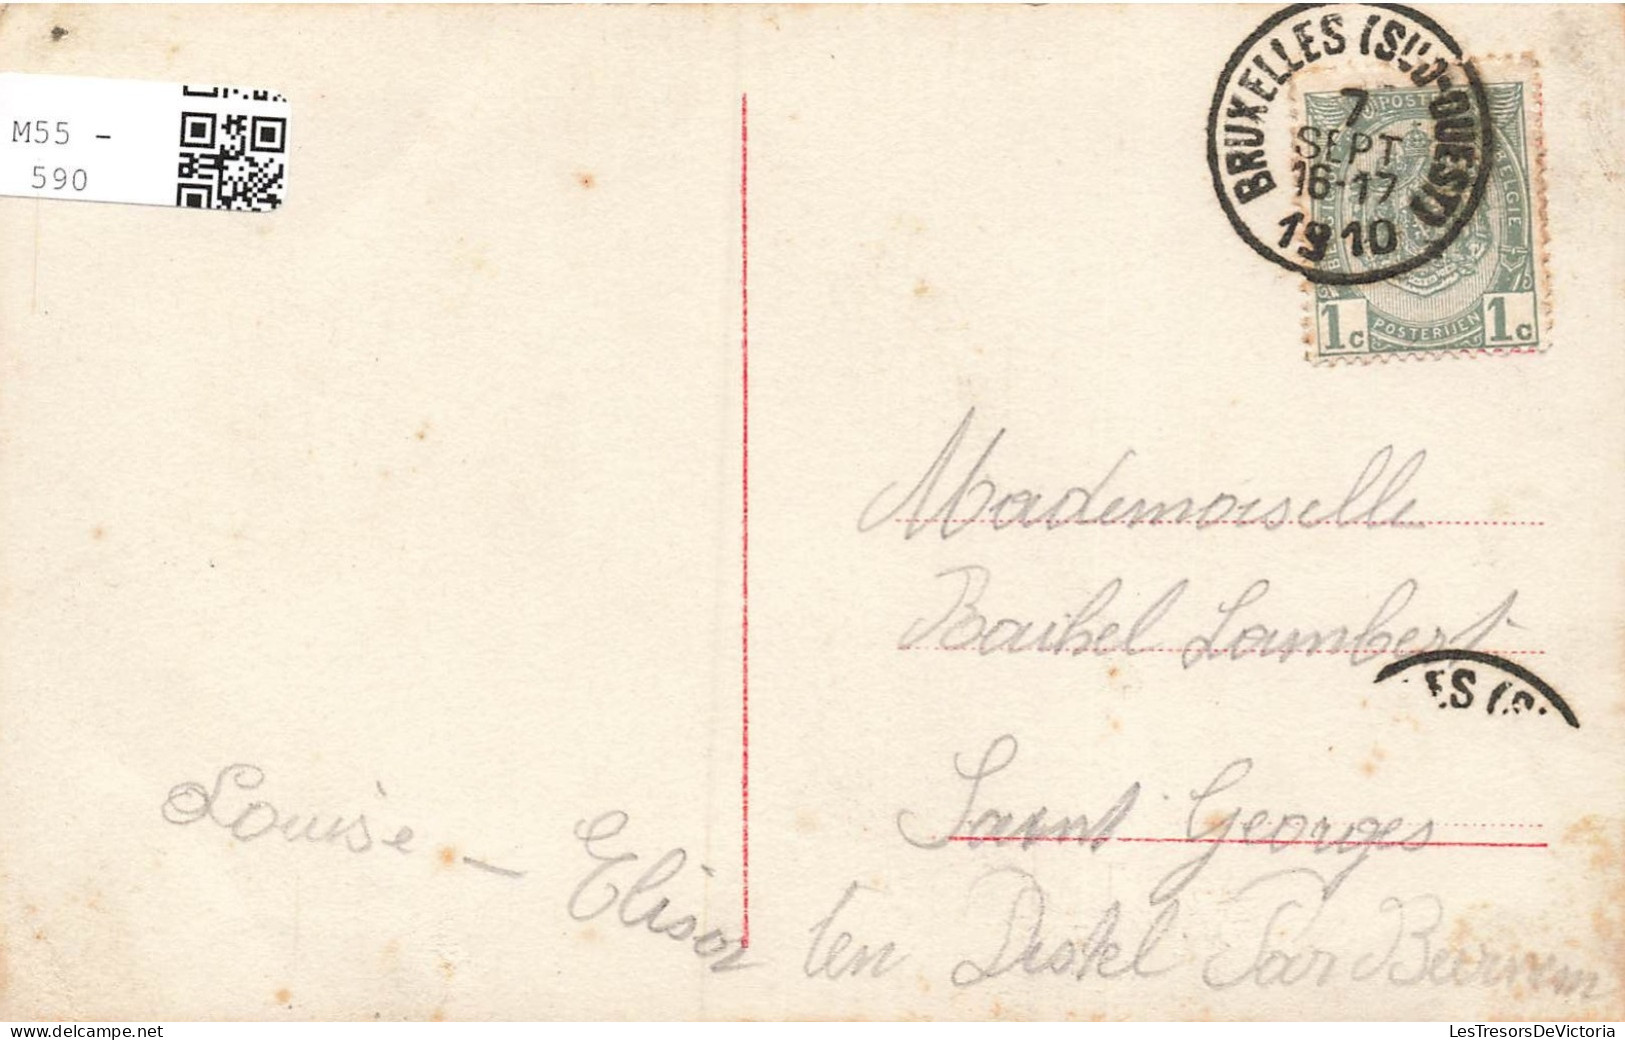 M55 -
590
BRUXELLES (SUD-OUEST)
7
SEPT
16-17
1910
POSTE
BELGIE
1c POSTERIJEN 1c
Mademoiselle
Rachel Lambert
ES (S
Saint Georges
Louise - Elisa
ten Distel Par
LesTresorsDeVictoria